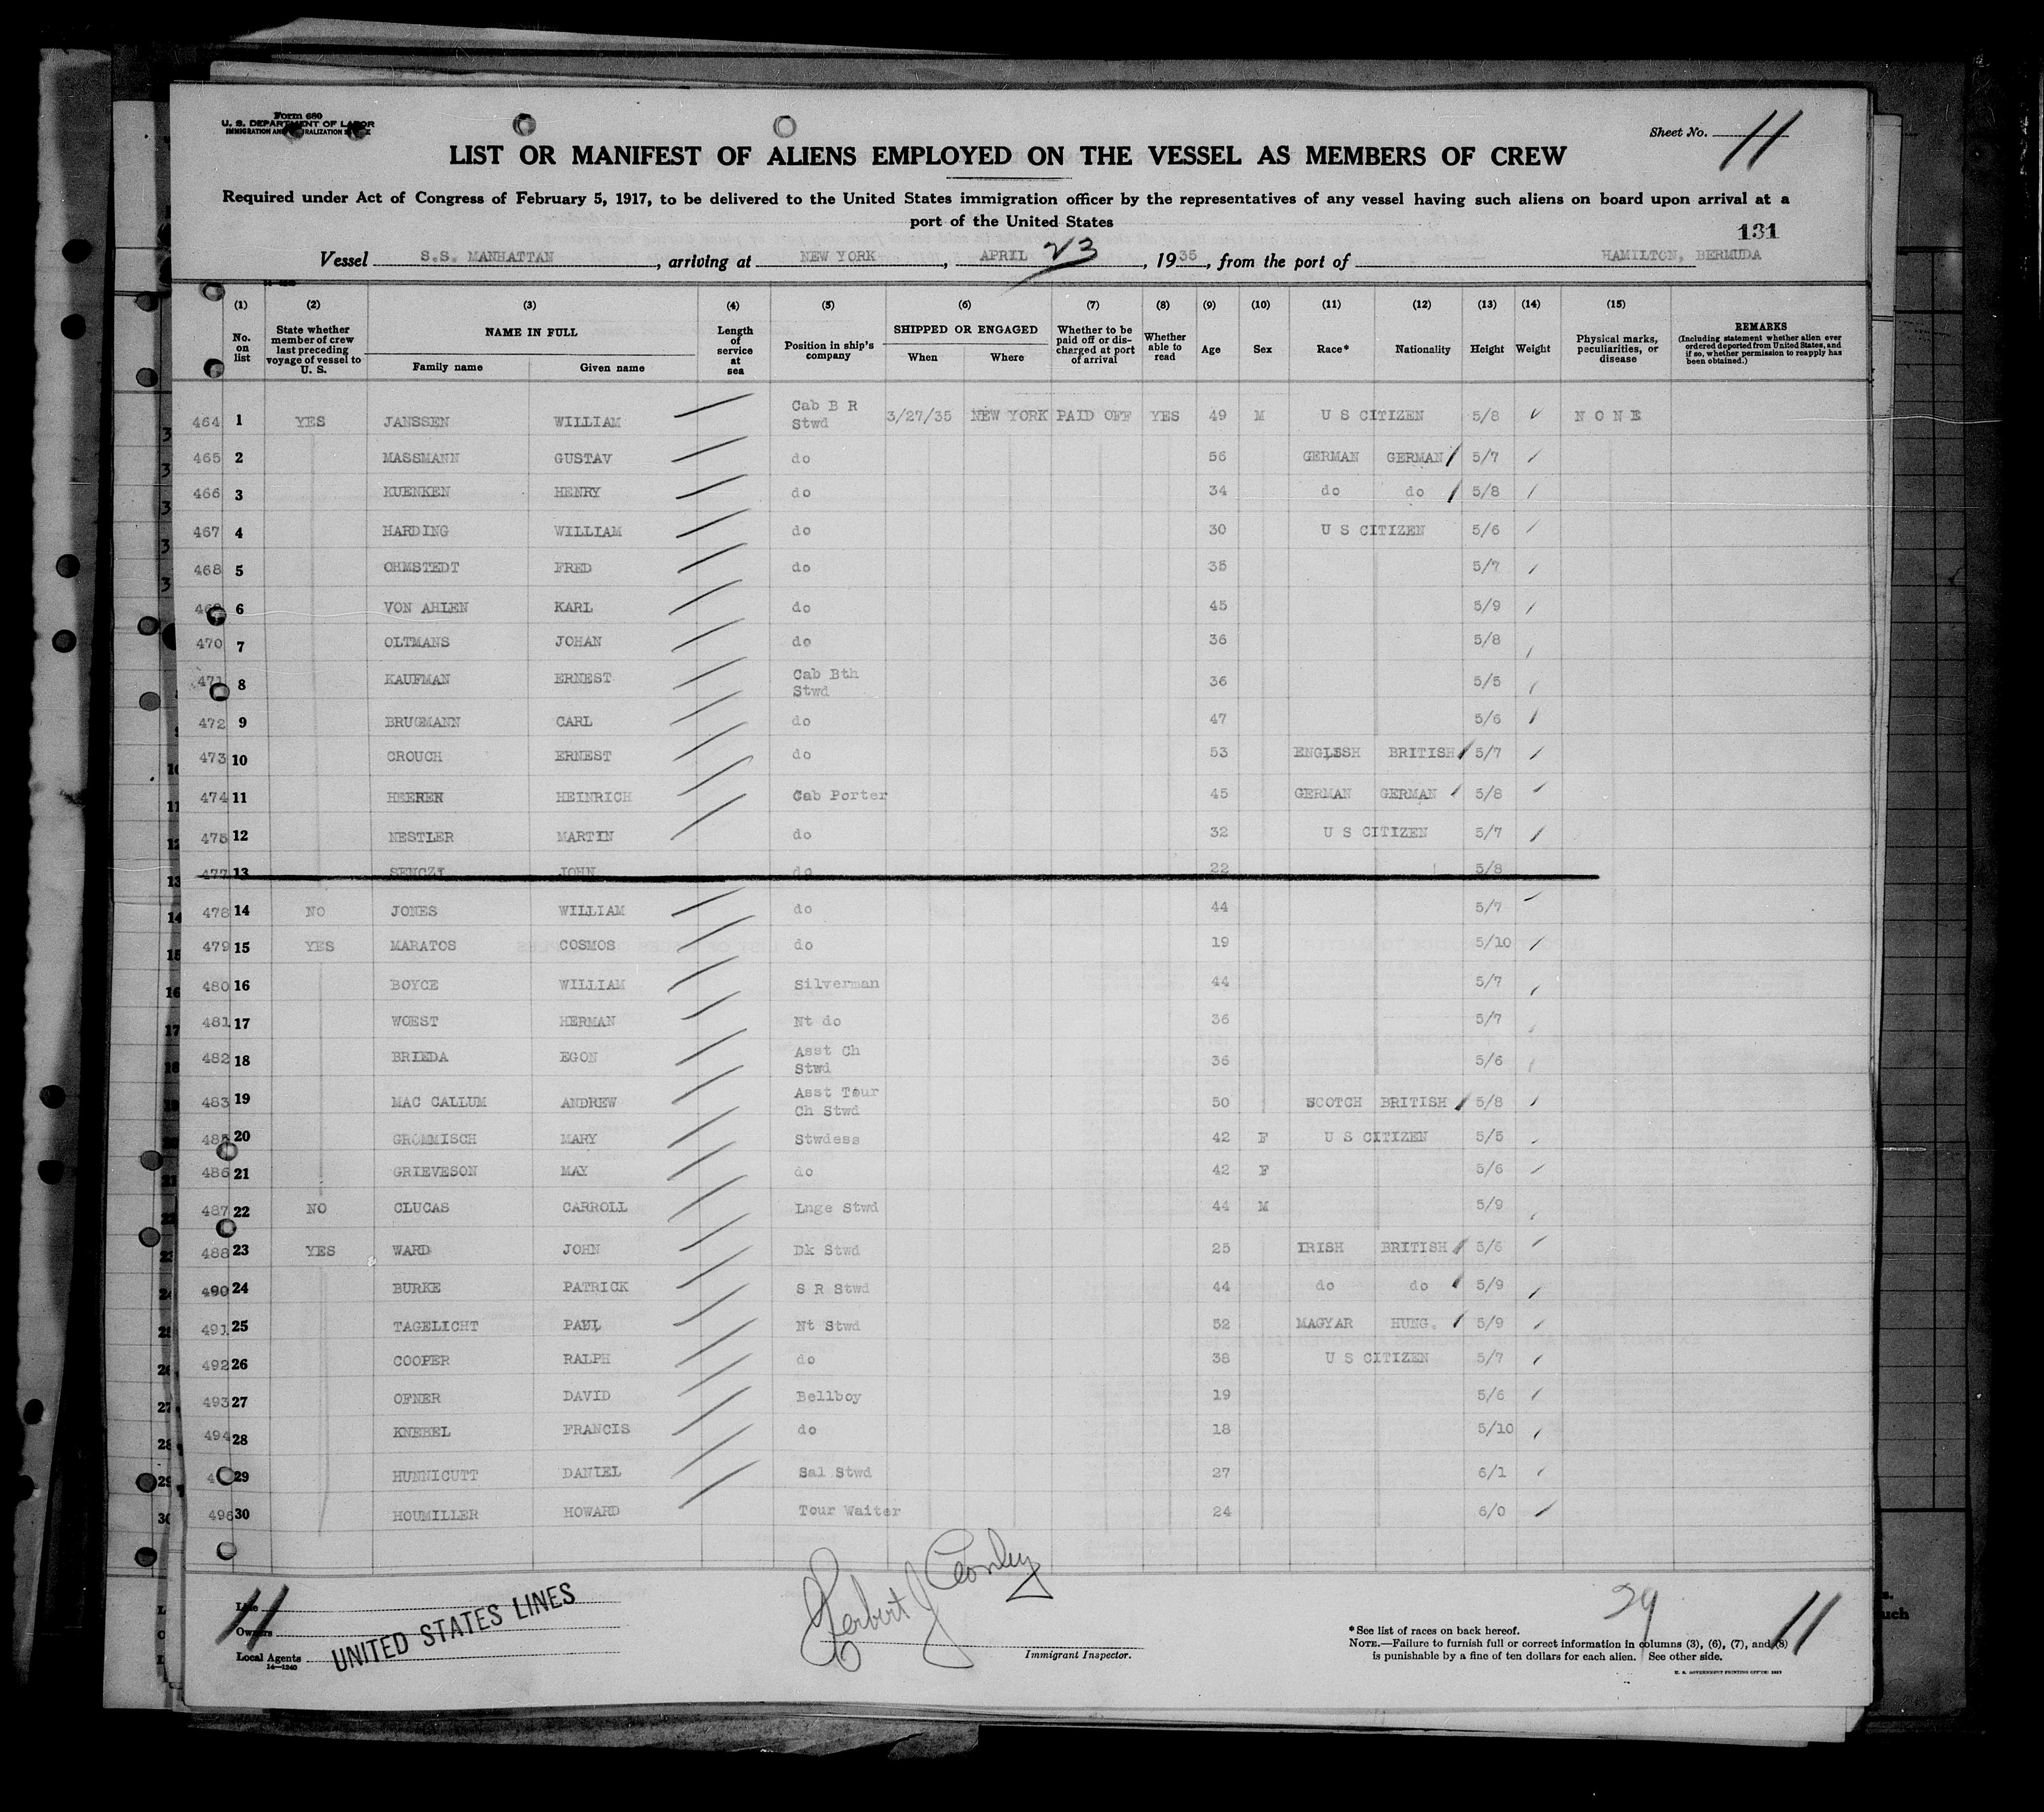 Form 680
U. S. DEPARTMENT OF LABOR
IMMIGRATION AND NATURALIZATION
Sheet No. 11
LIST OR MANIFEST OF ALIENS EMPLOYED ON THE VESSEL AS MEMBERS OF CREW
Required under Act of Congress of February 5, 1917, to be delivered to the United States immigration officer by the representatives of any vessel having such aliens on board upon arrival at a
port of the United States
131
Vessel S.S. MANHATTAN, arriving at NEW YORK, APRIL 23, 1935, from the port of HAMILTON, BERMUDA
(1) (2) (3) (4) (5) (6) (7) (8) (9) (10) (11) (12) (13) (14) (15)
No. on list
State whether member of crew last preceding voyage of vessel to U. S.
NAME IN FULL
Family name
Given name
Length of service at sea
Position in ship's company
SHIPPED OR ENGAGED
When
Where
Whether to be paid off or discharged at port of arrival
Whether able to read
Age
Sex
Race*
Nationality
Height
Weight
Physical marks, peculiarities, or disease
REMARKS
(Including statement whether alien ever ordered deported from United States, and if so, whether permission to reapply has been obtained.)
464 1 YES JANSSEN WILLIAM Cab B R Stwd 3/27/35 NEW YORK PAID OFF YES 49 M U S CITIZEN 5/8 NONE
465 2 MASSMANN GUSTAV do 56 GERMAN GERMAN 5/7
466 3 KUENKEN HENRY do 34 do do 5/8
467 4 HARDING WILLIAM do 30 U S CITIZEN 5/6
468 5 OHMSTEDT FRED do 35 5/7
6 VON AHLEN KARL do 45 5/9
470 7 OLTMANS JOHAN do 36 5/8
471 8 KAUFMAN ERNEST Cab Bth Stwd 36 5/5
472 9 BRUGMANN CARL do 47 5/6
473 10 CROUCH ERNEST do 53 ENGLSSH BRITISH 5/7
474 11 HEEREN HEINRICH Cab Porter 45 GERMAN GERMAN 5/8
475 12 NESTLER MARTIN do 32 U S CITIZEN 5/7
477 13 SENCZI JOHN do 22 5/8
478 14 NO JONES WILLIAM do 44 5/7
479 15 YES MARATOS COSMOS do 19 5/10
480 16 BOYCE WILLIAM Silverman 44 5/7
481 17 WOEST HERMAN Nt do 36 5/7
482 18 BRIEDA EGON Asst Ch Stwd 36 5/6
483 19 MAC CALLUM ANDREW Asst Tour Ch Stwd 50 SCOTCH BRITISH 5/8
485 20 GROMMISCH MARY Stwdess 42 F U S CITIZEN 5/5
486 21 GRIEVESON MAY do 42 F 5/6
487 22 NO CLUCAS CARROLL Lnge Stwd 44 M 5/9
488 23 YES WARD JOHN Dk Stwd 25 IRISH BRITISH 5/6
490 24 BURKE PATRICK S R Stwd 44 do do 5/9
491 25 TAGELICHT PAUL Nt Stwd 52 MAGYAR HUNG. 5/9
492 26 COOPER RALPH do 38 U S CITIZEN 5/7
493 27 OFNER DAVID Bellboy 19 5/6
494 28 KNEBEL FRANCIS do 18 5/10
29 HUNNICUTT DANIEL Sal Stwd 27 6/1
496 30 HOUMILLER HOWARD Tour Waiter 24 6/0
11
Line
Owners
Local Agents
14—1240
UNITED STATES LINES
Immigrant Inspector.
*See list of races on back hereof.
NOTE.—Failure to furnish full or correct information in columns (3), (6), (7), and (8)
is punishable by a fine of ten dollars for each alien. See other side.
29
11